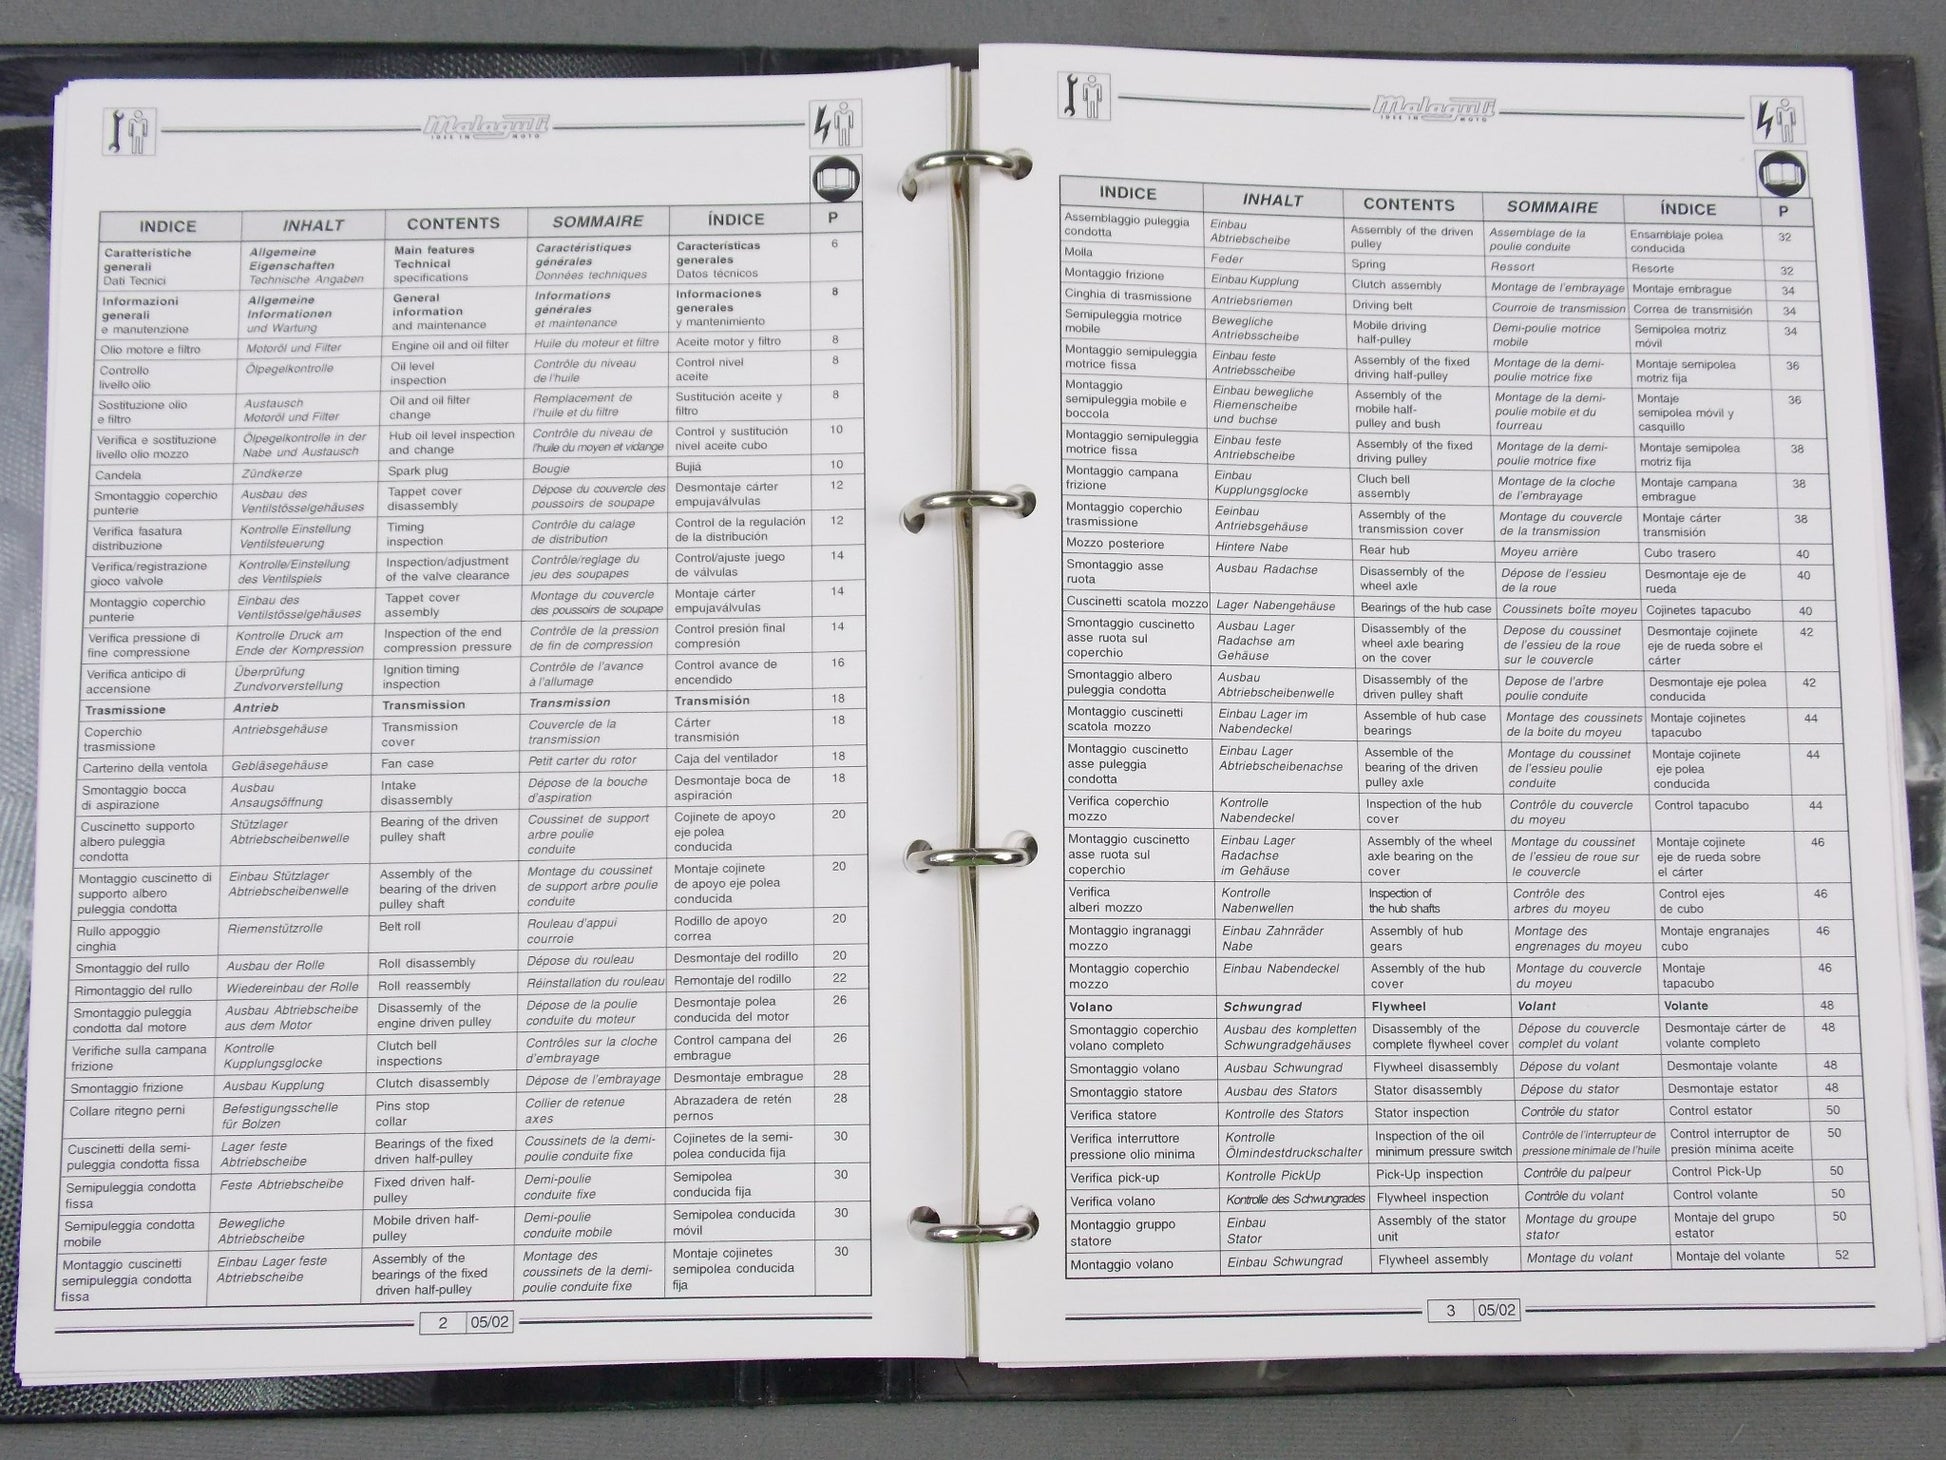 Malaguti
IDEE IN MOTO
INDICE INHALT CONTENTS SOMMAIRE ÍNDICE P
Caratteristiche generali Dati Tecnici Allgemeine Eigenschaften Technische Angaben Main features Technical specifications Caractéristiques générales Données techniques Características generales Datos técnicos 6
Informazioni generali e manutenzione Allgemeine Informationen und Wartung General information and maintenance Informations générales et maintenance Informaciones generales y mantenimiento 8
Olio motore e filtro Motoröl und Filter Engine oil and oil filter Huile du moteur et filtre Aceite motor y filtro 8
Controllo livello olio Ölpegelkontrolle Oil level inspection Contrôle du niveau de l'huile Control nivel aceite 8
Sostituzione olio e filtro Austausch Motoröl und Filter Oil and oil filter change Remplacement de l'huile et du filtre Sustitución aceite y filtro 8
Verifica e sostituzione livello olio mozzo Ölpegelkontrolle in der Nabe und Austausch Hub oil level inspection and change Contrôle du niveau de l'huile du moyen et vidange Control y sustitución nivel aceite cubo 10
Candela Zündkerze Spark plug Bougie Bujiá 10
Smontaggio coperchio punterie Ausbau des Ventilstösselgehäuses Tappet cover disassembly Dépose du couvercle des poussoirs de soupape Desmontaje cárter empujaválvulas 12
Verifica fasatura distribuzione Kontrolle Einstellung Ventilsteuerung Timing inspection Contrôle du calage de distribution Control de la regulación de la distribución 12
Verifica/registrazione gioco valvole Kontrolle/Einstellung des Ventilspiels Inspection/adjustment of the valve clearance Contrôle/reglage du jeu des soupapes Control/ajuste juego de válvulas 14
Montaggio coperchio punterie Einbau des Ventilstösselgehäuses Tappet cover assembly Montage du couvercle des poussoirs de soupape Montaje cárter empujaválvulas 14
Verifica pressione di fine compressione Kontrolle Druck am Ende der Kompression Inspection of the end compression pressure Contrôle de la pression de fin de compression Control presión final compresión 14
Verifica anticipo di accensione Überprüfung Zundvorverstellung Ignition timing inspection Contrôle de l'avance à l'allumage Control avance de encendido 16
Trasmissione Antrieb Transmission Transmission Transmisión 18
Coperchio trasmissione Antriebsgehäuse Transmission cover Couvercle de la transmission Cárter transmisión 18
Carterino della ventola Gebläsegehäuse Fan case Petit carter du rotor Caja del ventilador 18
Smontaggio bocca di aspirazione Ausbau Ansaugsöffnung Intake disassembly Dépose de la bouche d'aspiration Desmontaje boca de aspiración 18
Cuscinetto supporto albero puleggia condotta Stützlager Abtriebscheibenwelle Bearing of the driven pulley shaft Coussinet de support arbre poulie conduite Cojinete de apoyo eje polea conducida 20
Montaggio cuscinetto di supporto albero puleggia condotta Einbau Stützlager Abtriebscheibenwelle Assembly of the bearing of the driven pulley shaft Montage du coussinet de support arbre poulie conduite Montaje cojinete de apoyo eje polea conducida 20
Rullo appoggio cinghia Riemenstützrolle Belt roll Rouleau d'appui courroie Rodillo de apoyo correa 20
Smontaggio del rullo Ausbau der Rolle Roll disassembly Dépose du rouleau Desmontaje del rodillo 20
Rimontaggio del rullo Wiedereinbau der Rolle Roll reassembly Réinstallation du rouleau Remontaje del rodillo 22
Smontaggio puleggia condotta dal motore Ausbau Abtriebscheibe aus dem Motor Disassemly of the engine driven pulley Dépose de la poulie conduite du moteur Desmontaje polea conducida del motor 26
Verifiche sulla campana frizione Kontrolle Kupplungsglocke Clutch bell inspections Contrôles sur la cloche d'embrayage Control campana del embrague 26
Smontaggio frizione Ausbau Kupplung Clutch disassembly Dépose de l'embrayage Desmontaje embrague 28
Collare ritegno perni Befestigungsschelle für Bolzen Pins stop collar Collier de retenue axes Abrazadera de retén pernos 28
Cuscinetti della semi-puleggia condotta fissa Lager feste Abtriebscheibe Bearings of the fixed driven half-pulley Coussinets de la demi-poulie conduite fixe Cojinetes de la semi-polea conducida fija 30
Semipuleggia condotta fissa Feste Abtriebscheibe Fixed driven half-pulley Demi-poulie conduite fixe Semipolea conducida fija 30
Semipuleggia condotta mobile Bewegliche Abtriebscheibe Mobile driven half-pulley Demi-poulie conduite mobile Semipolea conducida móvil 30
Montaggio cuscinetti semipuleggia condotta fissa Einbau Lager feste Abtriebscheibe Assembly of the bearings of the fixed driven half-pulley Montage des coussinets de la demi-poulie conduite fixe Montaje cojinetes semipolea conducida fija 30
2 05/02
Malaguti
IDEE IN MOTO
INDICE INHALT CONTENTS SOMMAIRE ÍNDICE P
Assemblaggio puleggia condotta Einbau Abtriebscheibe Assembly of the driven pulley Assemblage de la poulie conduite Ensamblaje polea conducida 32
Molla Feder Spring Ressort Resorte 32
Montaggio frizione Einbau Kupplung Clutch assembly Montage de l'embrayage Montaje embrague 34
Cinghia di trasmissione Antriebsriemen Driving belt Courroie de transmission Correa de transmisión 34
Semipuleggia motrice mobile Bewegliche Antriebsscheibe Mobile driving half-pulley Demi-poulie motrice mobile Semipolea motriz móvil 34
Montaggio semipuleggia motrice fissa Einbau feste Antriebsscheibe Assembly of the fixed driving half-pulley Montage de la demi-poulie motrice fixe Montaje semipolea motriz fija 36
Montaggio semipuleggia mobile e boccola Einbau bewegliche Riemenscheibe und buchse Assembly of the mobile half-pulley and bush Montage de la demi-poulie mobile et du fourreau Montaje semipolea móvil y casquillo 36
Montaggio semipuleggia motrice fissa Einbau feste Antriebscheibe Assembly of the fixed driving pulley Montage de la demi-poulie motrice fixe Montaje semipolea motriz fija 38
Montaggio campana frizione Einbau Kupplungsglocke Cluch bell assembly Montage de la cloche de l'embrayage Montaje campana embrague 38
Montaggio coperchio trasmissione Eeinbau Antriebsgehäuse Assembly of the transmission cover Montage du couvercle de la transmission Montaje cárter transmisión 38
Mozzo posteriore Hintere Nabe Rear hub Moyeu arrière Cubo trasero 40
Smontaggio asse ruota Ausbau Radachse Disassembly of the wheel axle Dépose de l'essieu de la roue Desmontaje eje de rueda 40
Cuscinetti scatola mozzo Lager Nabengehäuse Bearings of the hub case Coussinets boîte moyeu Cojinetes tapacubo 40
Smontaggio cuscinetto asse ruota sul coperchio Ausbau Lager Radachse am Gehäuse Disassembly of the wheel axle bearing on the cover Depose du coussinet de l'essieu de la roue sur le couvercle Desmontaje cojinete eje de rueda sobre el cárter 42
Smontaggio albero puleggia condotta Ausbau Abtriebscheibenwelle Disassembly of the driven pulley shaft Depose de l'arbre poulie conduite Desmontaje eje polea conducida 42
Montaggio cuscinetti scatola mozzo Einbau Lager im Nabendeckel Assemble of hub case bearings Montage des coussinets de la boite du moyeu Montaje cojinetes tapacubo 44
Montaggio cuscinetto asse puleggia condotta Einbau Lager Abtriebscheibenachse Assemble of the bearing of the driven pulley axle Montage du coussinet de l'essieu poulie conduite Montaje cojinete eje polea conducida 44
Verifica coperchio mozzo Kontrolle Nabendeckel Inspection of the hub cover Contrôle du couvercle du moyeu Control tapacubo 44
Montaggio cuscinetto asse ruota sul coperchio Einbau Lager Radachse im Gehäuse Assembly of the wheel axle bearing on the cover Montage du coussinet de l'essieu de roue sur le couvercle Montaje cojinete eje de rueda sobre el cárter 46
Verifica alberi mozzo Kontrolle Nabenwellen Inspection of the hub shafts Contrôle des arbres du moyeu Control ejes de cubo 46
Montaggio ingranaggi mozzo Einbau Zahnräder Nabe Assembly of hub gears Montage des engrenages du moyeu Montaje engranajes cubo 46
Montaggio coperchio mozzo Einbau Nabendeckel Assembly of the hub cover Montage du couvercle du moyeu Montaje tapacubo 46
Volano Schwungrad Flywheel Volant Volante 48
Smontaggio coperchio volano completo Ausbau des kompletten Schwungradgehäuses Disassembly of the complete flywheel cover Dépose du couvercle complet du volant Desmontaje cárter de volante completo 48
Smontaggio volano Ausbau Schwungrad Flywheel disassembly Dépose du volant Desmontaje volante 48
Smontaggio statore Ausbau des Stators Stator disassembly Dépose du stator Desmontaje estator 48
Verifica statore Kontrolle des Stators Stator inspection Contrôle du stator Control estator 50
Verifica interruttore pressione olio minima Kontrolle Ölmindestdruckschalter Inspection of the oil minimum pressure switch Contrôle de l'interrupteur de pressione minimale de l'huile Control interruptor de presión mínima aceite 50
Verifica pick-up Kontrolle PickUp Pick-Up inspection Contrôle du palpeur Control Pick-Up 50
Verifica volano Kontrolle des Schwungrades Flywheel inspection Contrôle du volant Control volante 50
Montaggio gruppo statore Einbau Stator Assembly of the stator unit Montage du groupe stator Montaje del grupo estator 50
Montaggio volano Einbau Schwungrad Flywheel assembly Montage du volant Montaje del volante 52
3 05/02